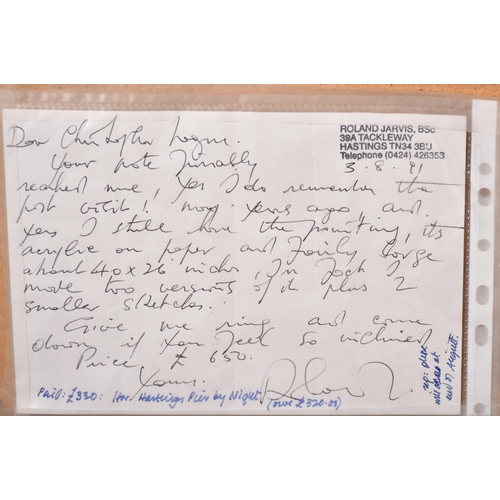 ROLAND JARVIS, BSc
39A TACKLEWAY
HASTINGS TN34 3BU
Telephone (0424) 426353
3.8.91
Dear Christopher Logue.
Your note finally
reached me, yes I do remember the
pub visit! many years ago, and
yes I still have the painting, its
acrylic on paper and fairly large
about 40 x 26 inches, In fact I
made two versions of it plus 2
smaller sketches.
Give me ring and come
down if you feel so inclined
Price £ 650.
Yours.
Paid: £330: for: Hastings Pier by Night (owe £320.00)
rep: phone
will
end of August.